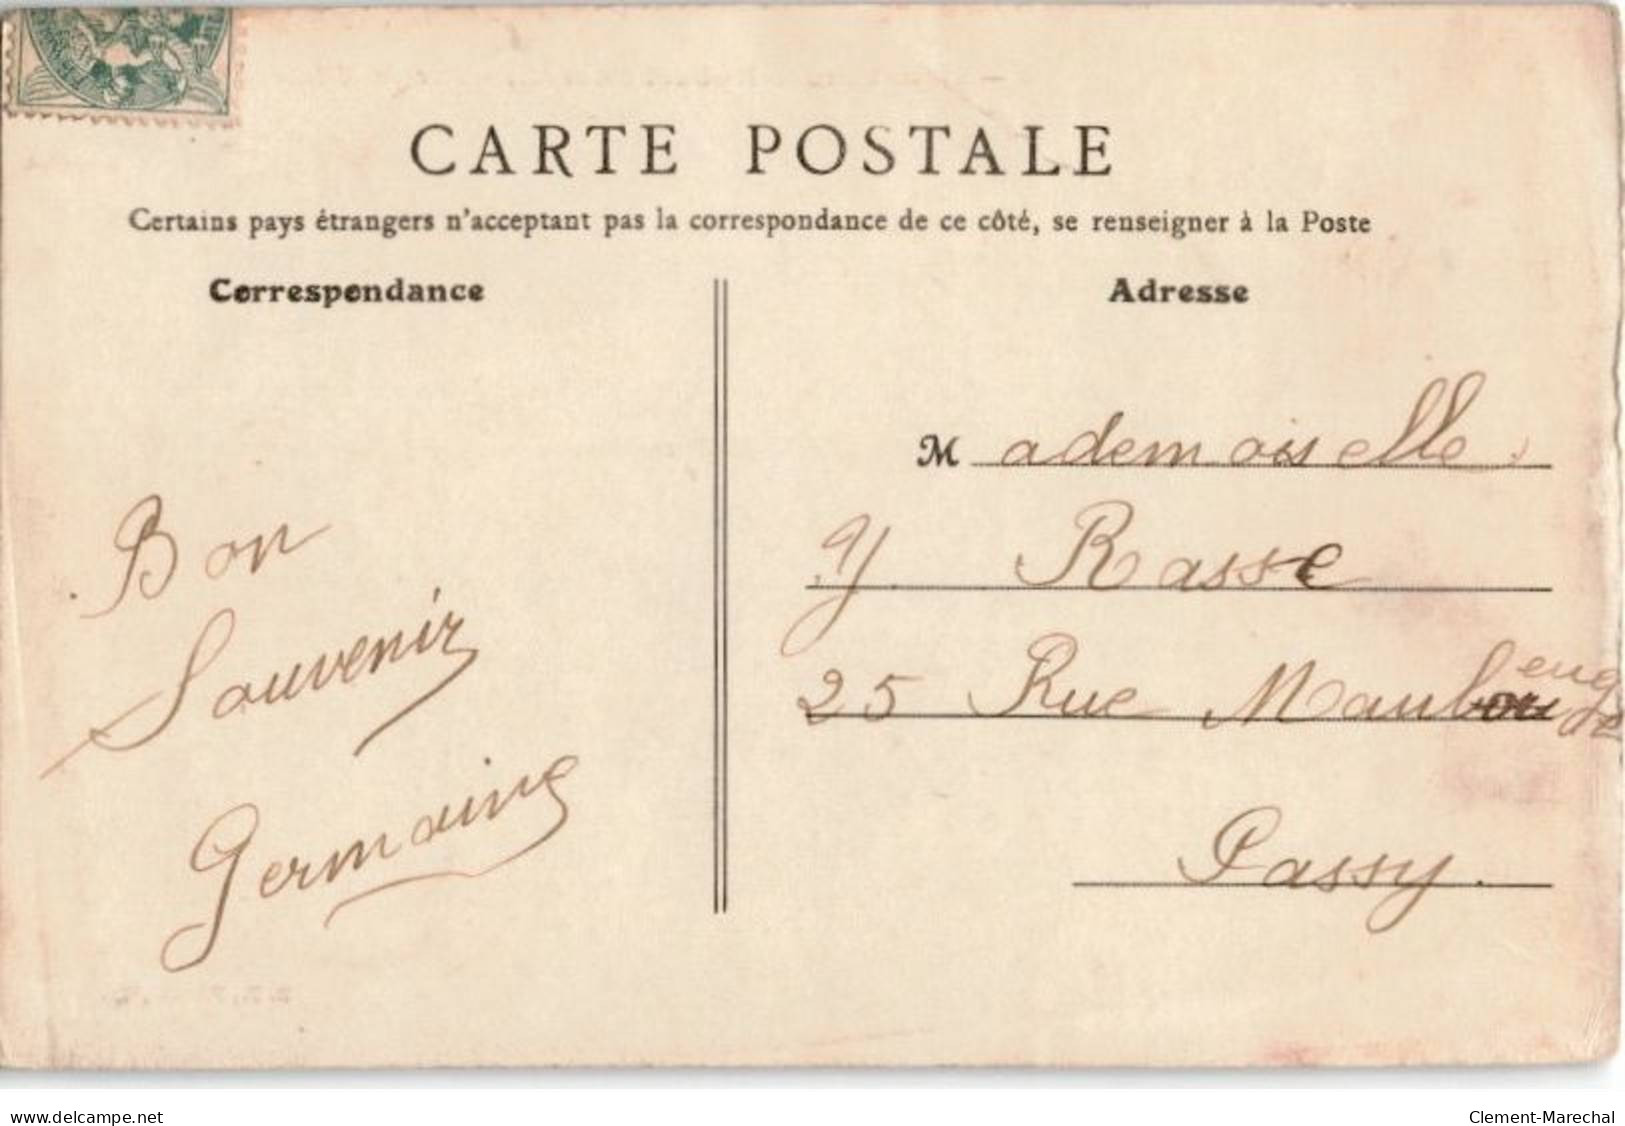 CARTE POSTALE
Certains pays étrangers n'acceptant pas la correspondance de ce côté, se renseigner à la Poste
Correspondance
Bon
Souvenir
Germaine
Adresse
Mademoiselle
Y. Rasse
25 Rue Maubeuge
Passy.
www.delcampe.net
Clement-Marechal